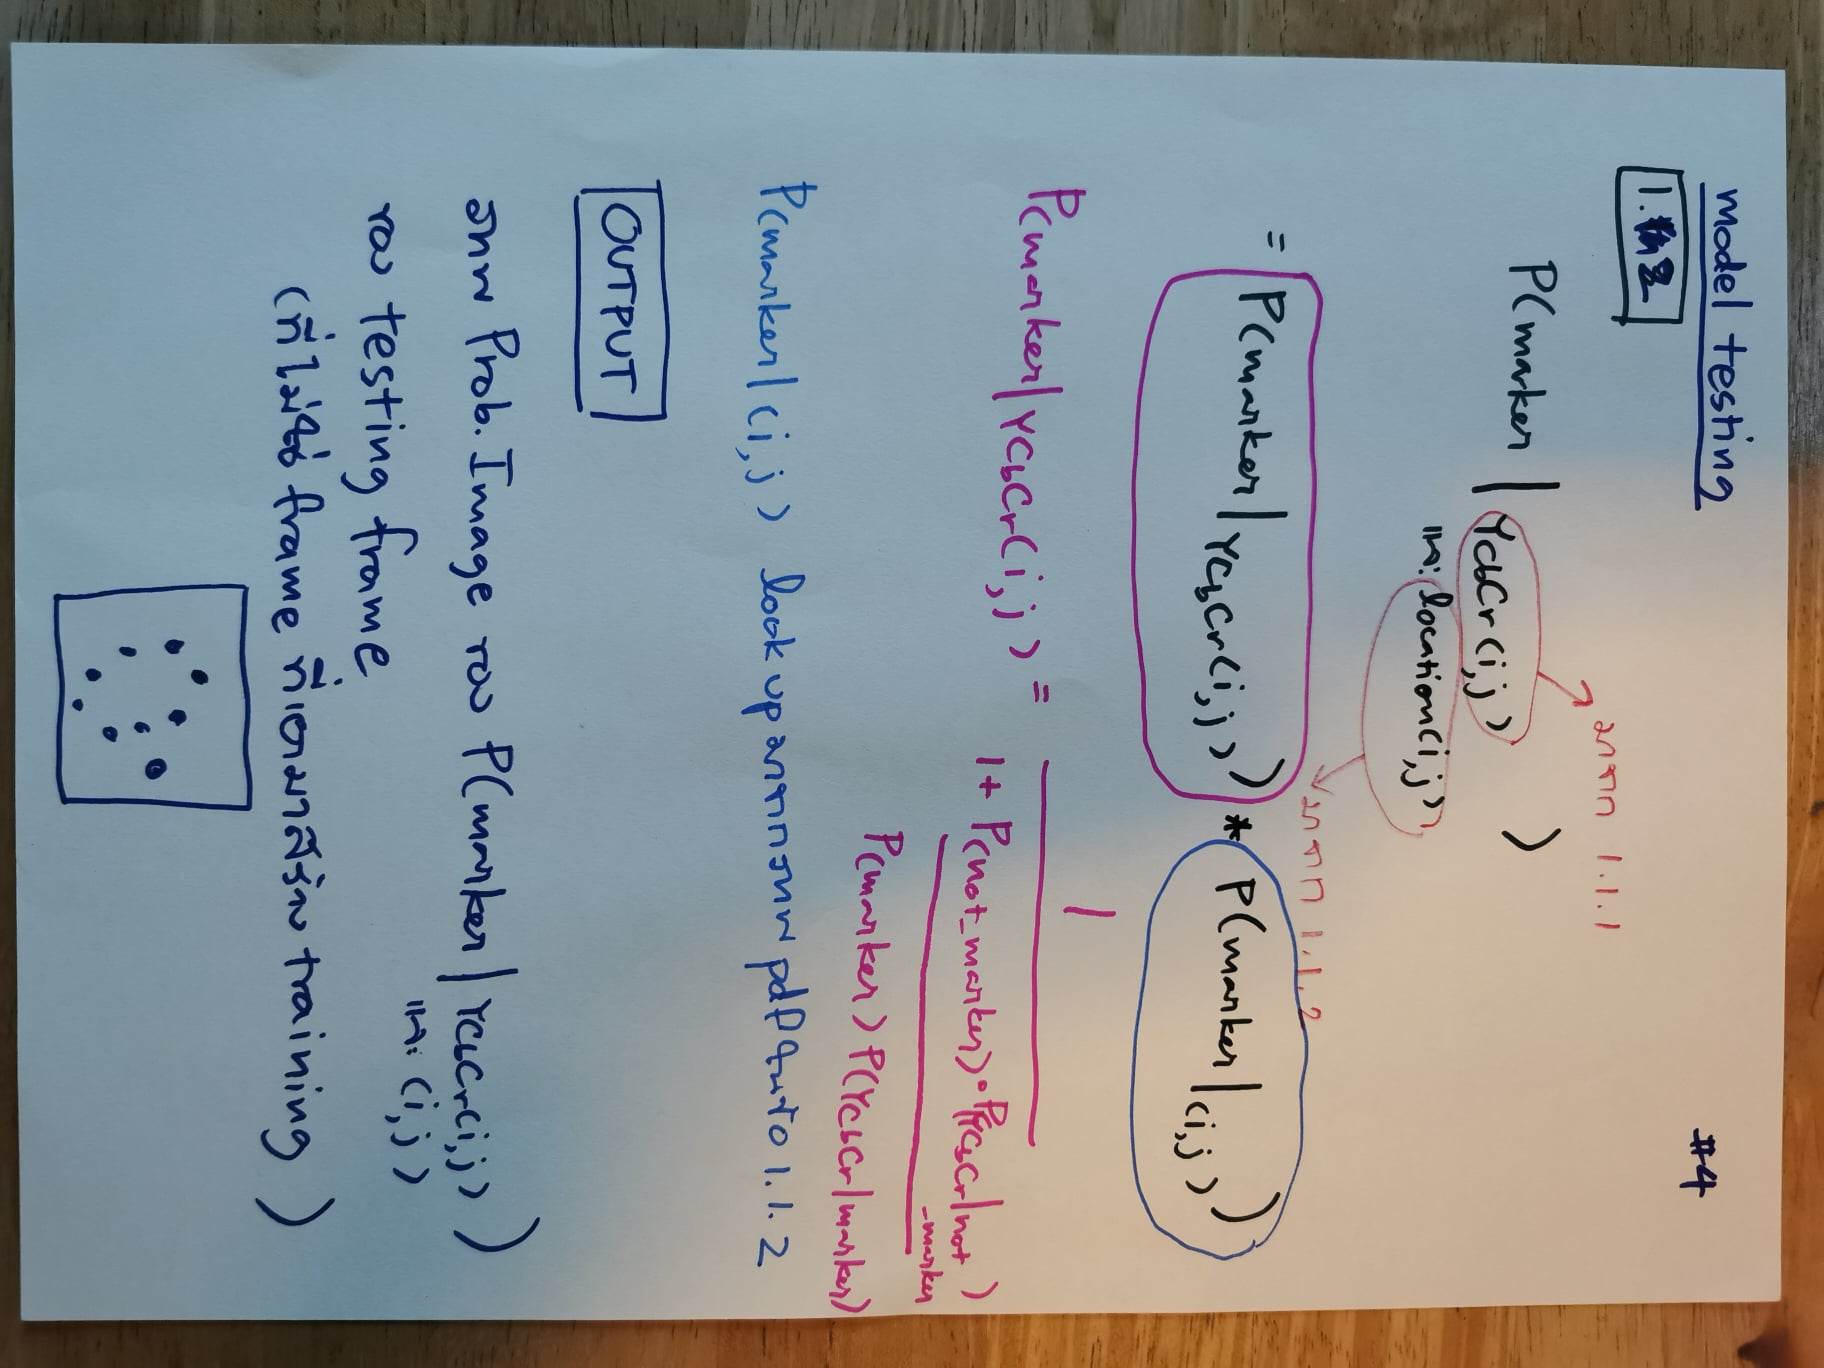 model testing
#4
1. 2
มาจาก 1.1.1
P(marker | YCbCr(i,j) )
และ location(i,j)
มาจาก 1.1.2
= P(marker|YCbCr(i,j)) * P(marker|(i,j))
P(marker|YCbCr(i,j)) = 1
1 + P(not_marker) • P(YCbCr|not_marker)
P(marker) P(YCbCr|marker)
P(marker|(i,j) look up มาจากภาพ pdf ในข้อ 1.1.2
OUTPUT
ภาพ Prob. Image ของ P(marker | YCbCr(i,j) )
และ (i,j)
ของ testing frame
(ที่ไม่ใช่ frame ที่เอามาสร้าง training )